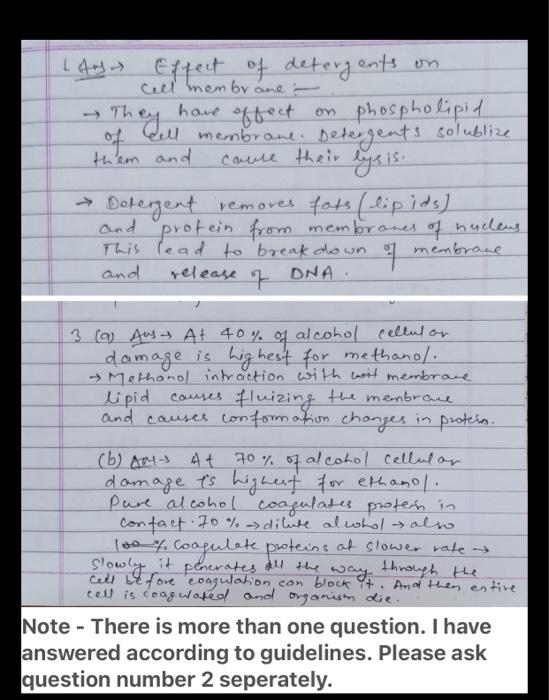 1 Ans → Effect of detergents on
cell membrane :-
→ They have effect on phospholipid
of cell membrane. Detergents solublize
them and cause their lysis.
→ Detergent removes fats (lipids)
and protein from membranes of nucleus
This lead to breakdown of membrane
and release of DNA.
3 (a) Ans → At 40% of alcohol cellular
damage is highest for methanol.
→ Methanol intraction with membrane
lipid causes fluizing the membrane
and causes conformation changes in protein.
(b) Ans → At 70% of alcohol cellular
damage is highest for ethanol.
Pure alcohol coagulates protein in
contact. 70% → dilute alcohol → also
100% coagulate proteins at slower rate →
Slowly it penerates all the way through the
cell before coagulation can block it. And then entire
cell is coagulated and organism die.
Note - There is more than one question. I have
answered according to guidelines. Please ask
question number 2 seperately.